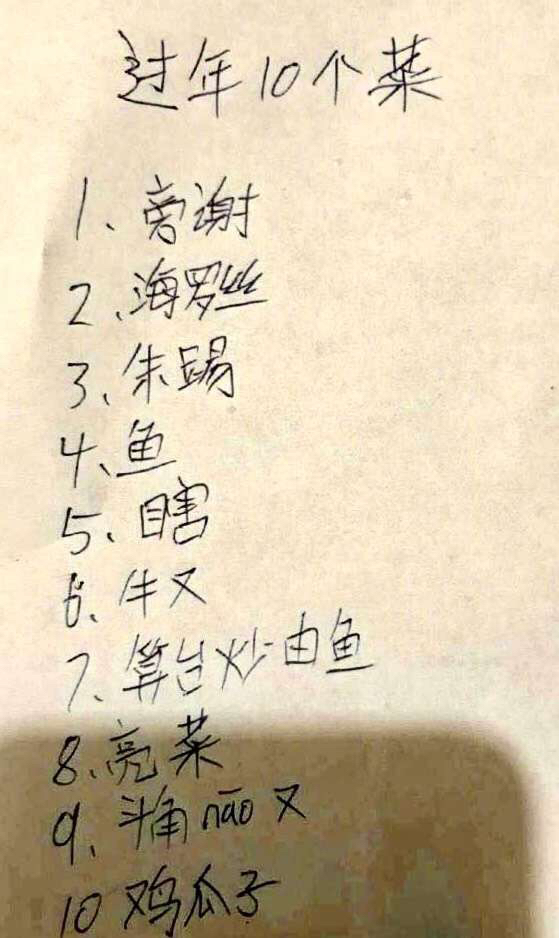 过年10个菜
1、旁谢
2、海罗丝
3、朱踢
4、鱼
5、瞎
6、牛又
7、算台炒由鱼
8、亮菜
9、斗角nǎo又
10 鸡瓜子